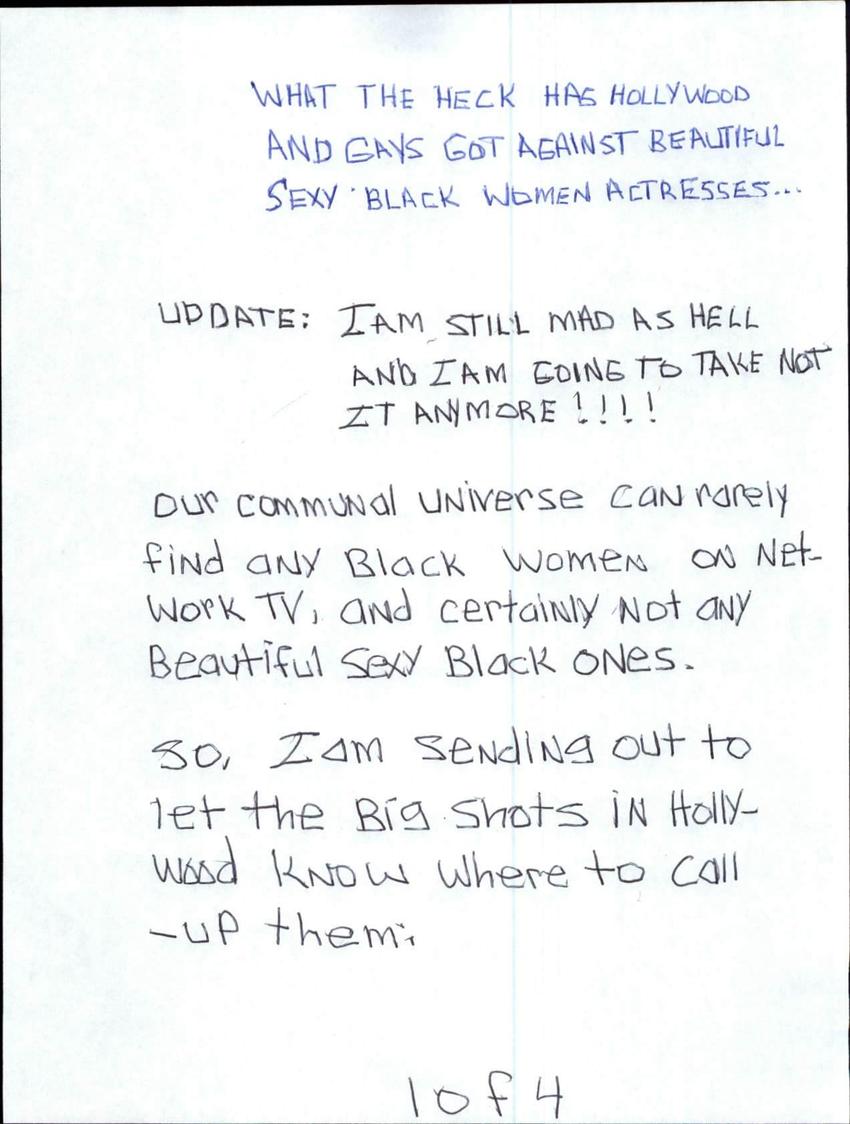 WHAT THE HECK HAS HOLLYWOOD
AND GAYS GOT AGAINST BEAUTIFUL
SEXY BLACK WOMEN ACTRESSES...
UPDATE: I AM STILL MAD AS HELL
AND I AM GOING TO TAKE NOT
IT ANYMORE!!!!
Our communal universe can rarely
find any Black women on Net-
work TV, and certainly not any
Beautiful Sexy Black ones.
So, I am sending out to
let the Big Shots in Holly-
wood know where to call
-up them:
1 of 4